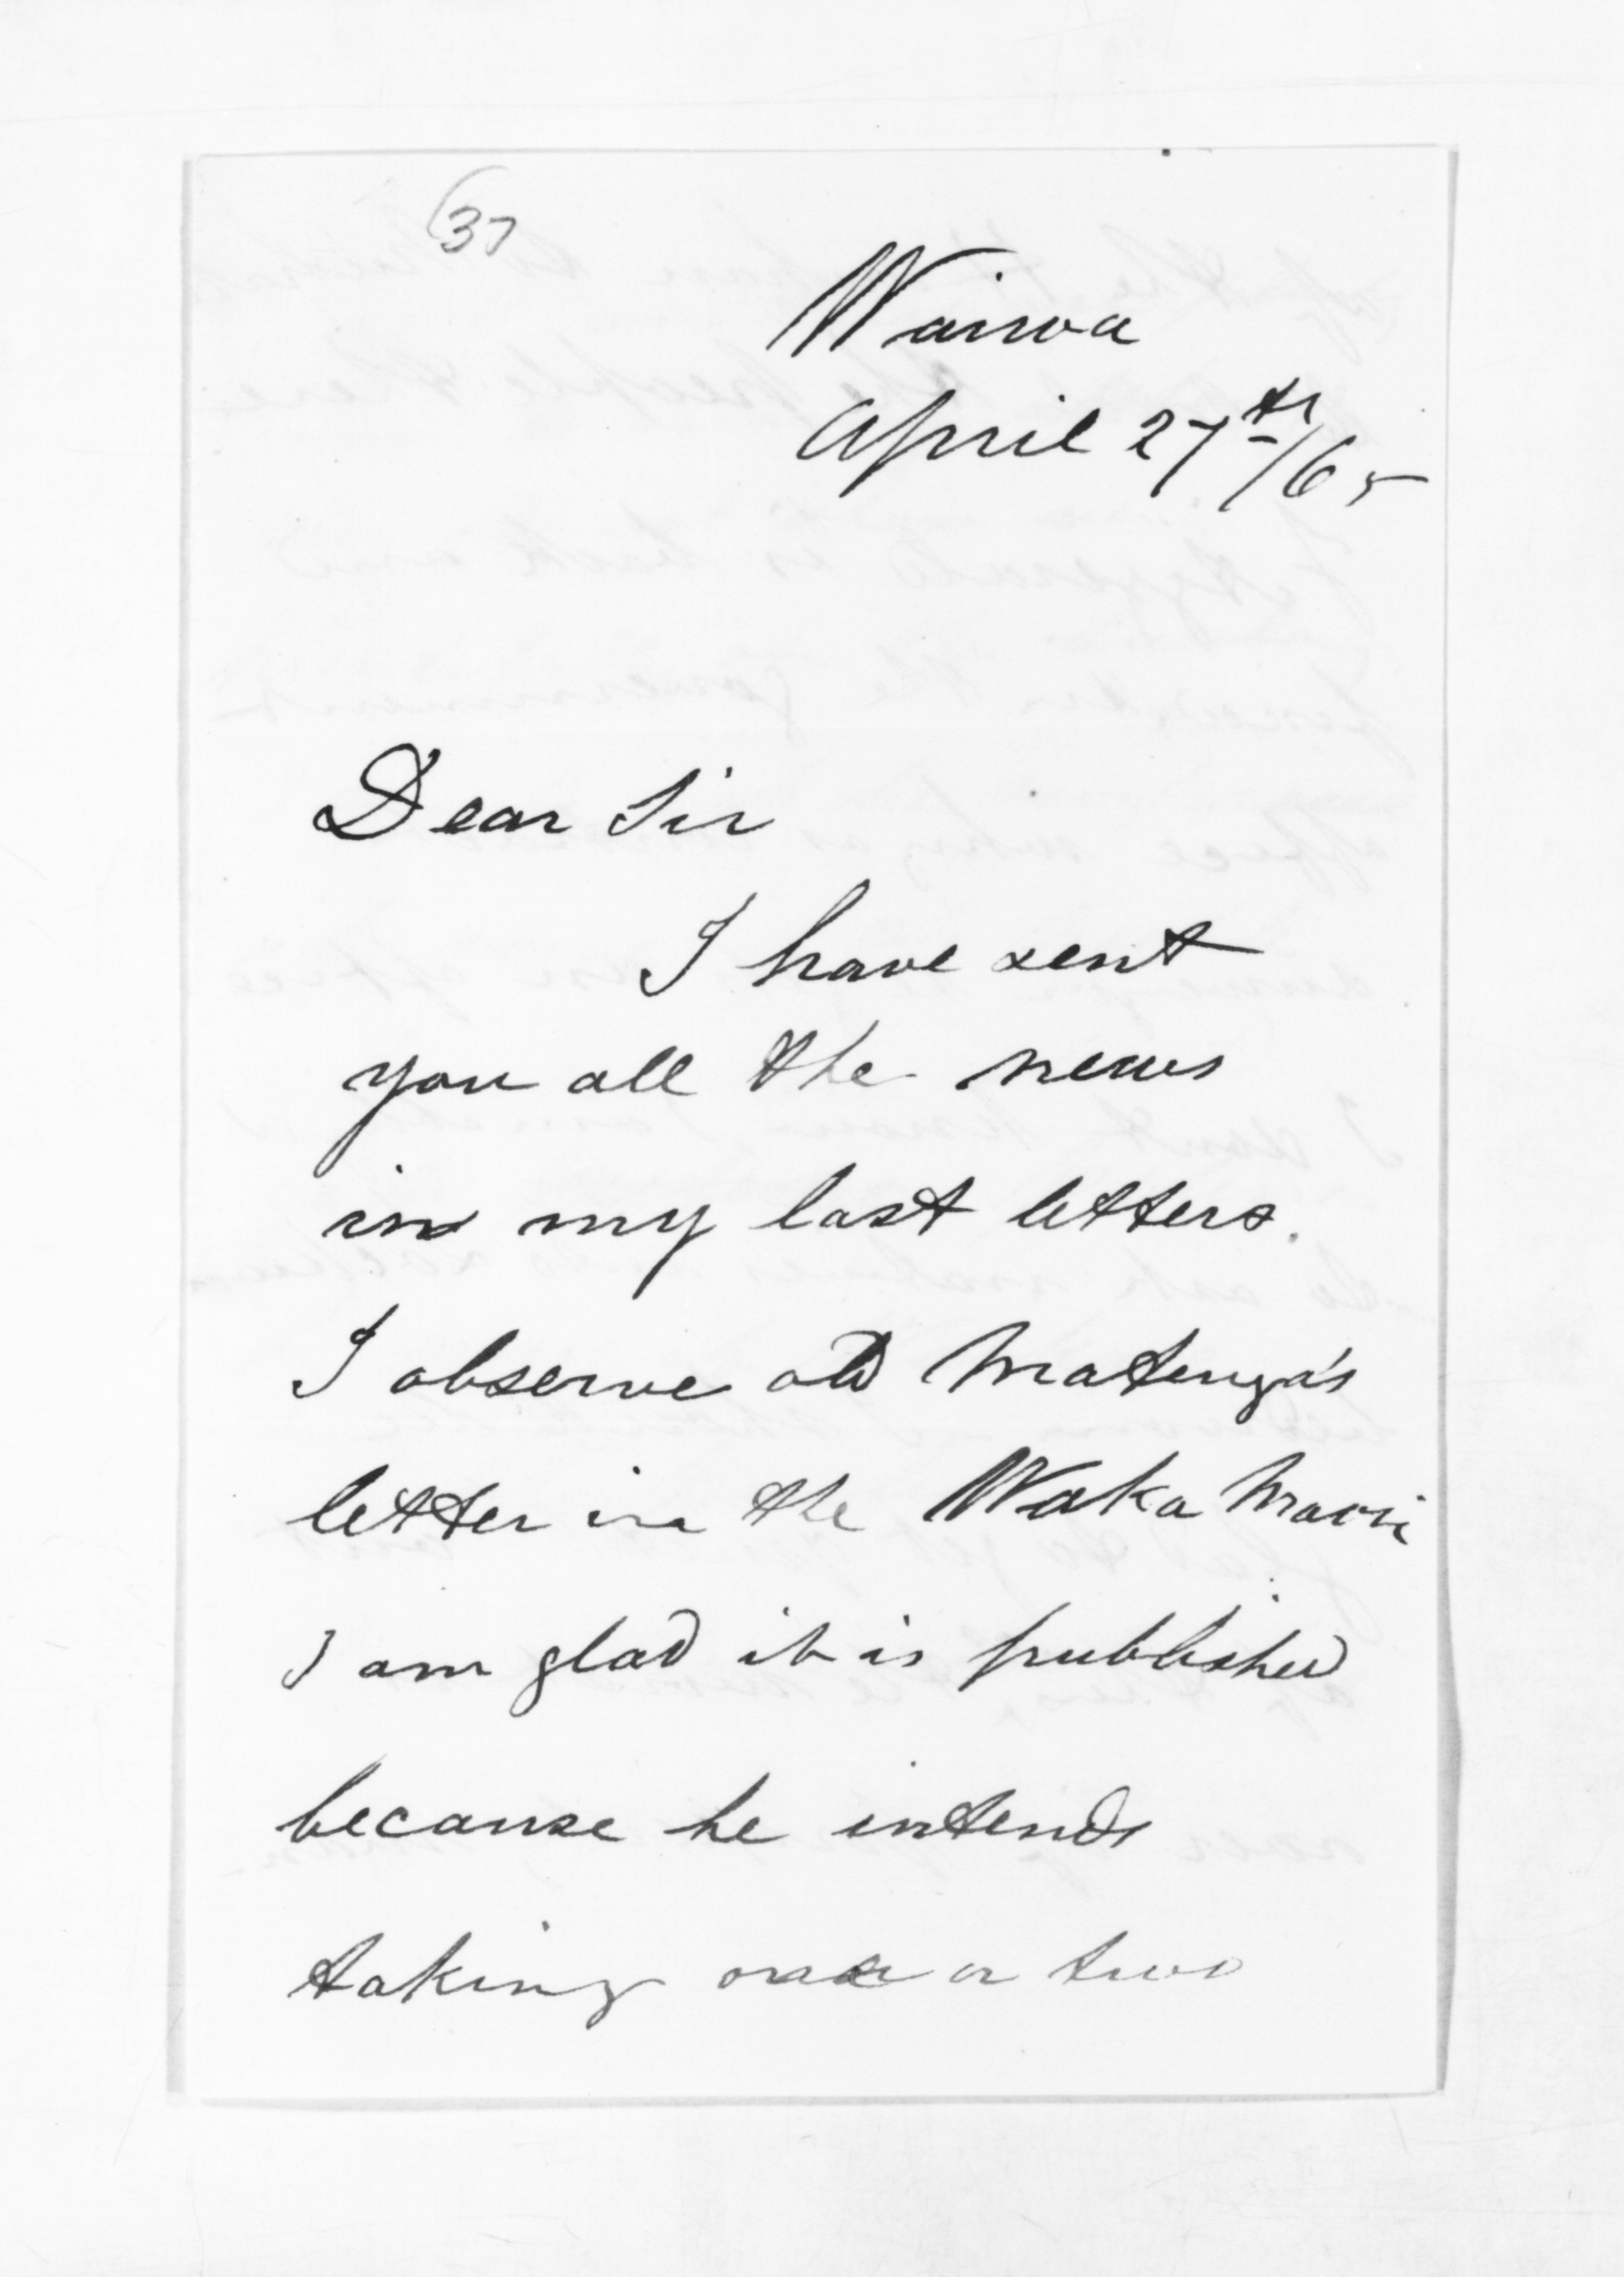 37
Wairoa
April 27th/65
Dear Sir
I have sent
you all the news
in my last letters.
I observe old Matenga's
letter in the Waka Maori
I am glad it is published
because he intends
taking one or two